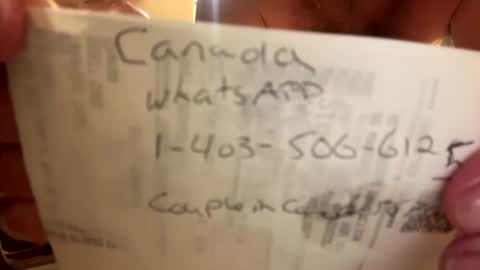 Canada
WhatsAPP
1-403-506-6125
Couple in